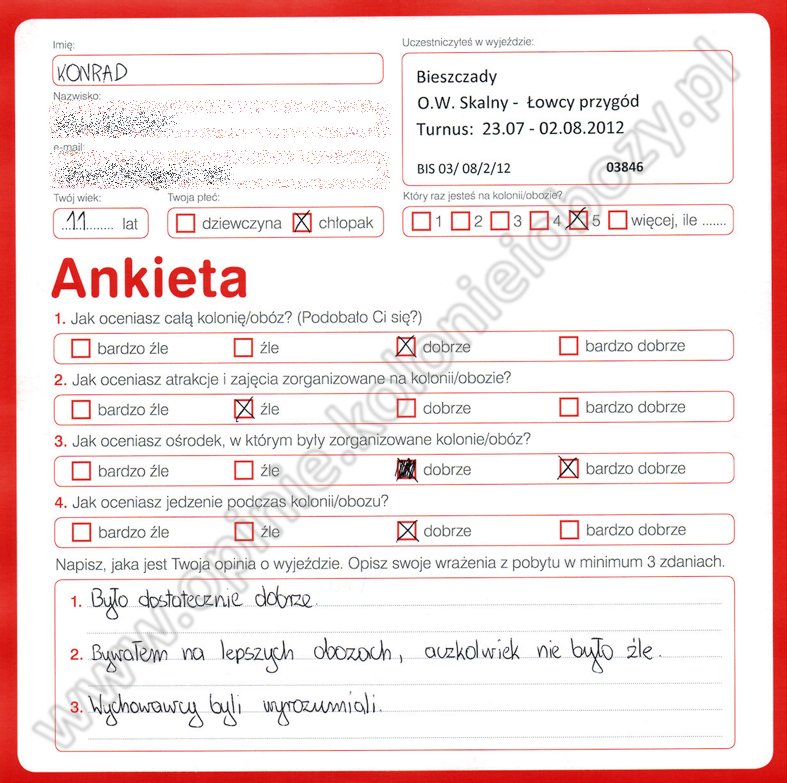 Imię:
KONRAD
Nazwisko:
e-mail:
Twój wiek:
11 lat
Twoja płeć:
dziewczyna chłopak
Uczestniczyłeś w wyjeździe:
Bieszczady
O.W. Skalny - Łowcy przygód
Turnus: 23.07 - 02.08.2012
BIS 03/ 08/2/12 03846
Który raz jesteś na kolonii/obozie?
1 2 3 4 5 więcej, ile .......
Ankieta
1. Jak oceniasz całą kolonię/obóz? (Podobało Ci się?)
bardzo źle źle dobrze bardzo dobrze
2. Jak oceniasz atrakcje i zajęcia zorganizowane na kolonii/obozie?
bardzo źle źle dobrze bardzo dobrze
3. Jak oceniasz ośrodek, w którym były zorganizowane kolonie/obóz?
bardzo źle źle dobrze bardzo dobrze
4. Jak oceniasz jedzenie podczas kolonii/obozu?
bardzo źle źle dobrze bardzo dobrze
Napisz, jaka jest Twoja opinia o wyjeździe. Opisz swoje wrażenia z pobytu w minimum 3 zdaniach.
1. Było dostatecznie dobrze.
2. Bywałem na lepszych obozach, aczkolwiek nie było źle.
3. Wychowawcy byli wyrozumiali.
www.opinie.kolonieiobozy.pl